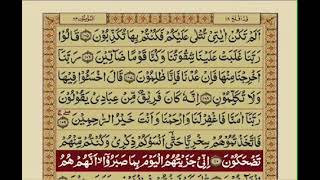 قد افلح ١٨ المؤمنون ٢٣
اَلَمْ تَكُنْ اٰيٰتِيْ تُتْلٰى عَلَيْكُمْ فَكُنْتُمْ بِهَا تُكَذِّبُوْنَ ﴿۱۰۵﴾ قَالُوْا
رَبَّنَا غَلَبَتْ عَلَيْنَا شِقْوَتُنَا وَكُنَّا قَوْمًا ضَآلِّيْنَ ﴿۱۰۶﴾
رَبَّنَآ اَخْرِجْنَا مِنْهَا فَاِنْ عُدْنَا فَاِنَّا ظٰلِمُوْنَ ﴿۱۰۷﴾ قَالَ اخْسَـُٔوْا فِيْهَا
وَلَا تُكَلِّمُوْنِ ﴿۱۰۸﴾ اِنَّهٗ كَانَ فَرِيْقٌ مِّنْ عِبَادِيْ يَقُوْلُوْنَ
رَبَّنَآ اٰمَنَّا فَاغْفِرْ لَنَا وَارْحَمْنَا وَاَنْتَ خَيْرُ الرّٰحِمِيْنَ ﴿۱۰۹﴾
فَاتَّخَذْتُمُوْهُمْ سِخْرِيًّا حَتّٰٓى اَنْسَوْكُمْ ذِكْرِيْ وَكُنْتُمْ مِّنْهُمْ
تَضْحَكُوْنَ ﴿۱۱۰﴾ اِنِّيْ جَزَيْتُهُمُ الْيَوْمَ بِمَا صَبَرُوْٓا اَنَّهُمْ هُمُ